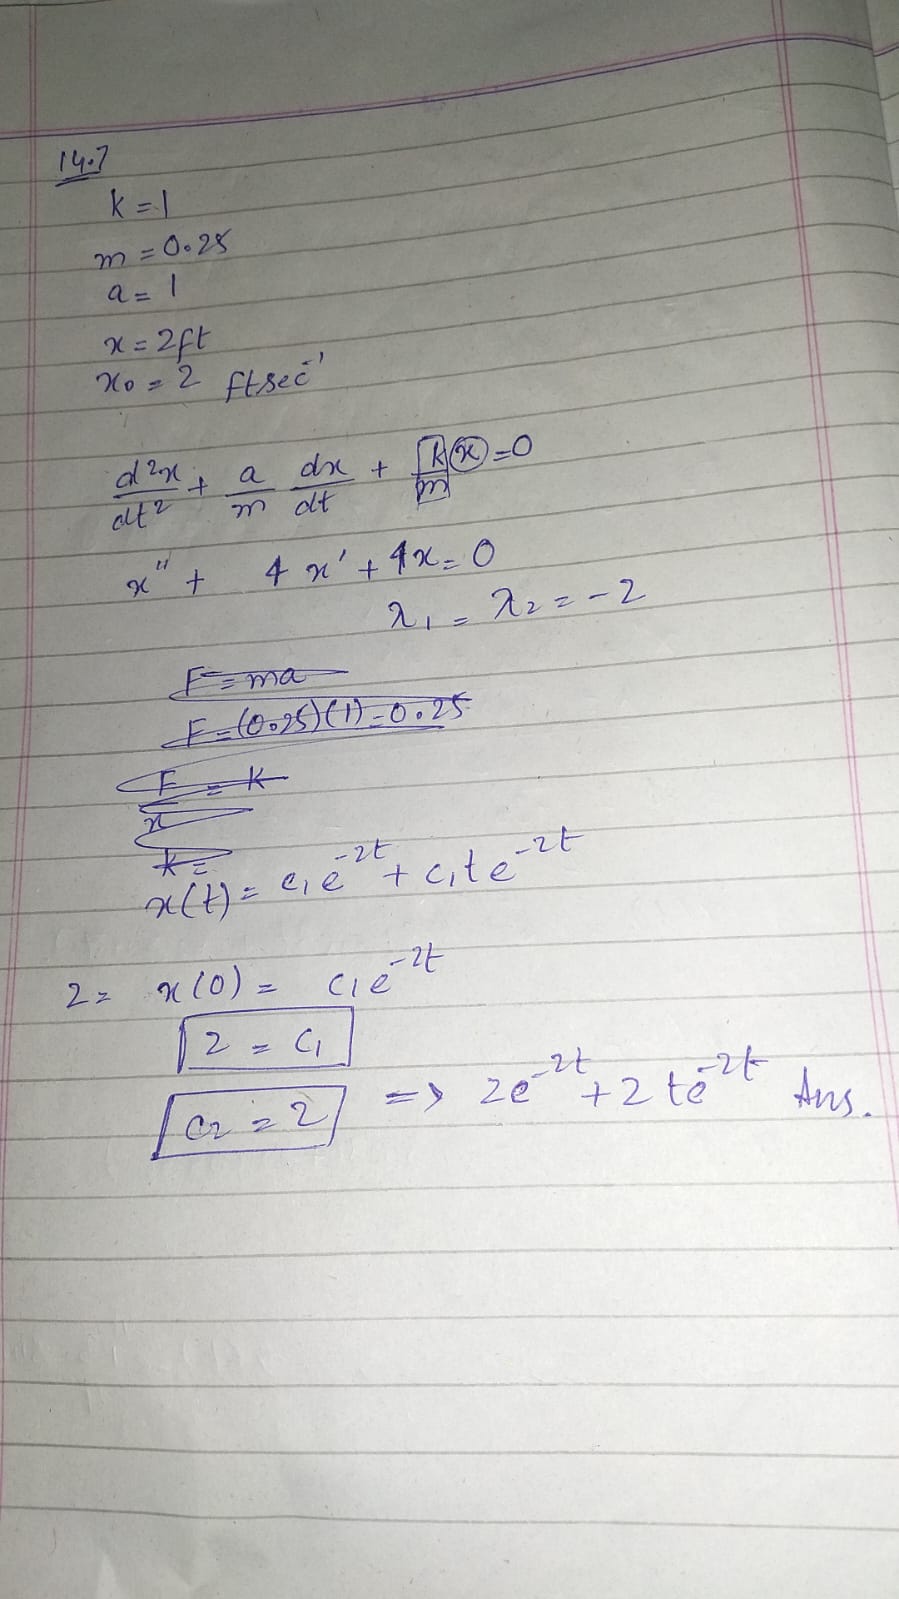 14.7
k = 1
m = 0.25
a = 1
x = 2ft
x₀ = 2 ftsec⁻¹
d²x/dt² + a/m dx/dt + k/m (x) = 0
x'' + 4x' + 4x = 0
λ₁ = λ₂ = -2
F = ma
F = (0.25)(1) = 0.25
F/x = k
k =
x(t) = c₁e⁻²ᵗ + c₁te⁻²ᵗ
2 = x(0) = c₁e⁻²ᵗ
2 = c₁
c₂ = 2 => 2e⁻²ᵗ + 2te⁻²ᵗ Ans.